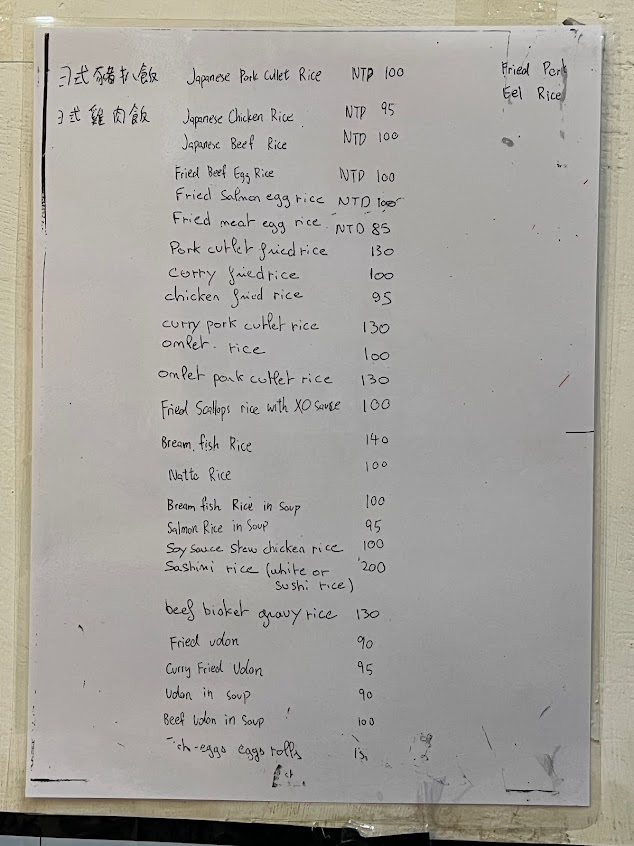 日式豬扒飯 Japanese Pork Cutlet Rice NTD 100
Fried Pork
Eel Rice
日式雞肉飯 Japanese Chicken Rice NTD 95
Japanese Beef Rice NTD 100
Fried Beef Egg Rice NTD 100
Fried Salmon egg rice NTD 100
Fried meat egg rice NTD 85
Pork cutlet fried rice 130
Curry fried rice 100
chicken fried rice 95
curry pork cutlet rice 130
omlet rice 100
omlet pork cutlet rice 130
Fried Scallops rice with XO sauce 100
Bream fish Rice 140
Natto Rice 100
Bream fish Rice in Soup 100
Salmon Rice in Soup 95
Soy sauce stew chicken rice 100
Sashimi rice (white or 200
sushi rice)
beef bisket gravy rice 130
Fried udon 90
Curry Fried Udon 95
Udon in soup 90
Beef Udon in Soup 100
eggs eggs rolls